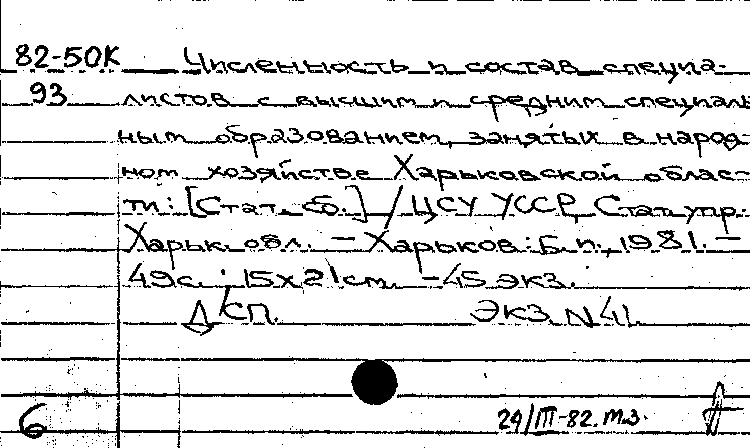 82-50К Численность и состав специа-
93 листов с высшим и средним специаль
ным образованием, занятых в народ
ном хозяйстве Харьковской облас-
ти: [Стат. сб.] / ЦСУ УССР, Стат. упр.
Харьк. обл. — Харьков: Б. и., 1981. —
49 с. ; 15х21 см. — 45 экз.
Д/СП. Экз. N 41.
6 29/III-82. М.З.